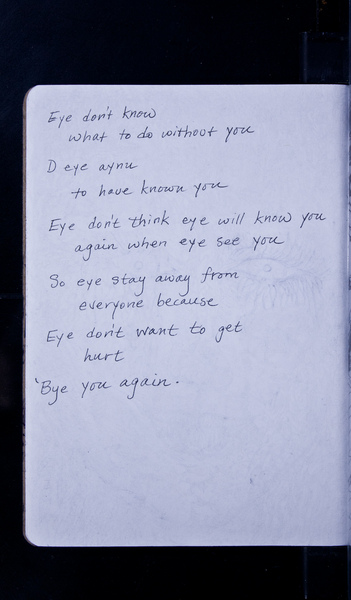 Eye don't know
what to do without you
D eye aynu
to have known you
Eye don't think eye will know you
again when eye see you
So eye stay away from
everyone because
Eye don't want to get
hurt
'Bye you again.